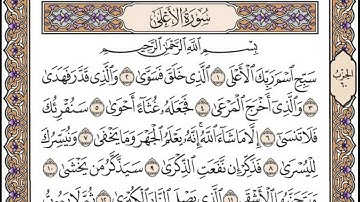 سُورَةُ الأَعْلَى
بِسْمِ اللَّهِ الرَّحْمَٰنِ الرَّحِيمِ
سَبِّحِ اسْمَ رَبِّكَ الْأَعْلَى ١ الَّذِي خَلَقَ فَسَوَّىٰ ٢ وَالَّذِي قَدَّرَ فَهَدَىٰ
٣ وَالَّذِي أَخْرَجَ الْمَرْعَىٰ ٤ فَجَعَلَهُ غُثَاءً أَحْوَىٰ ٥ سَنُقْرِئُكَ
فَلَا تَنسَىٰ ٦ إِلَّا مَا شَاءَ اللَّهُ إِنَّهُ يَعْلَمُ الْجَهْرَ وَمَا يَخْفَىٰ ٧ وَنُيَسِّرُكَ
لِلْيُسْرَىٰ ٨ فَذَكِّرْ إِن نَّفَعَتِ الذِّكْرَىٰ ٩ سَيَذَّكَّرُ مَن يَخْشَىٰ ١٠
وَيَتَجَنَّبُهَا الْأَشْقَى ١١ الَّذِي يَصْلَى النَّارَ الْكُبْرَىٰ ١٢ ثُمَّ لَا يَمُوتُ
الحزب
٦٠